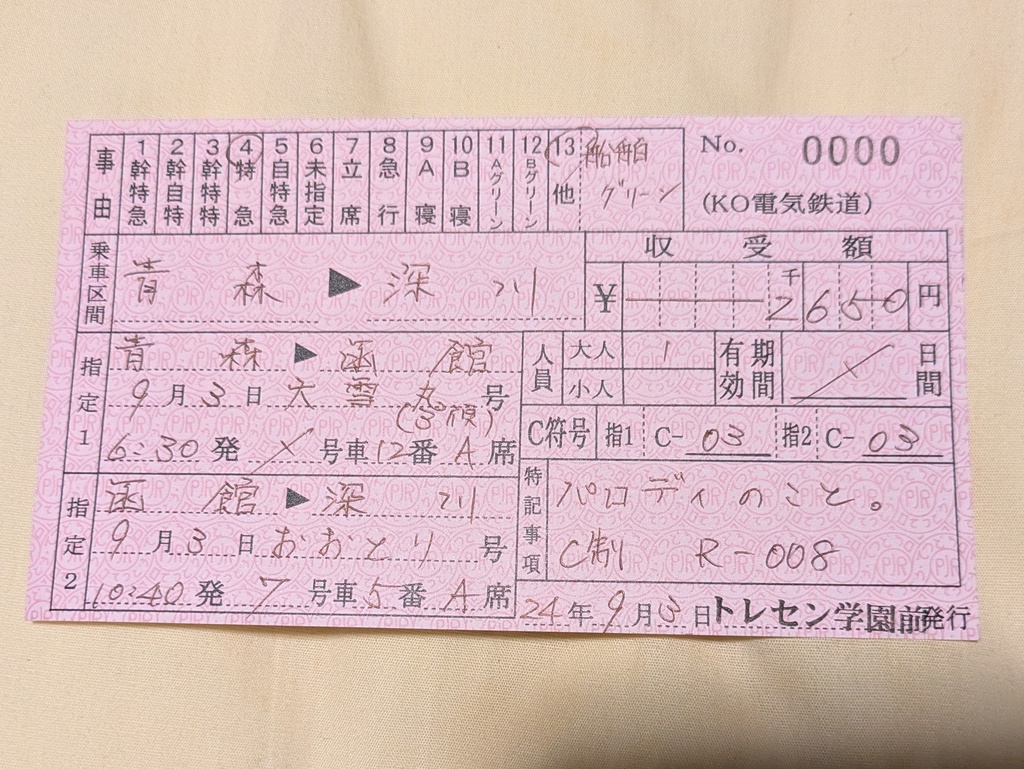 事由 1幹特急 2幹自特 3幹特特 4特急 5自特急 6未指定 7立席 8急行 9A寝 10B寝 11Aグリーン 12Bグリーン 13他 船舶グリーン
No. 0000
(KO電気鉄道)
乗車区間 青森 ▶ 深川
収受額
¥ 千 2650円
指定1 青森 ▶ 函館
9月3日 大雪丸号
6:30発 号車12番A席
人員 大人 1 小人
有効期間 日間
C符号 指1 C-03 指2 C-03
指定2 函館 ▶ 深川
9月3日 おおとり号
10:40発 7号車5番A席
特記事項 パロディのこと。
C制 R-008
24年9月3日 トレセン学園前発行